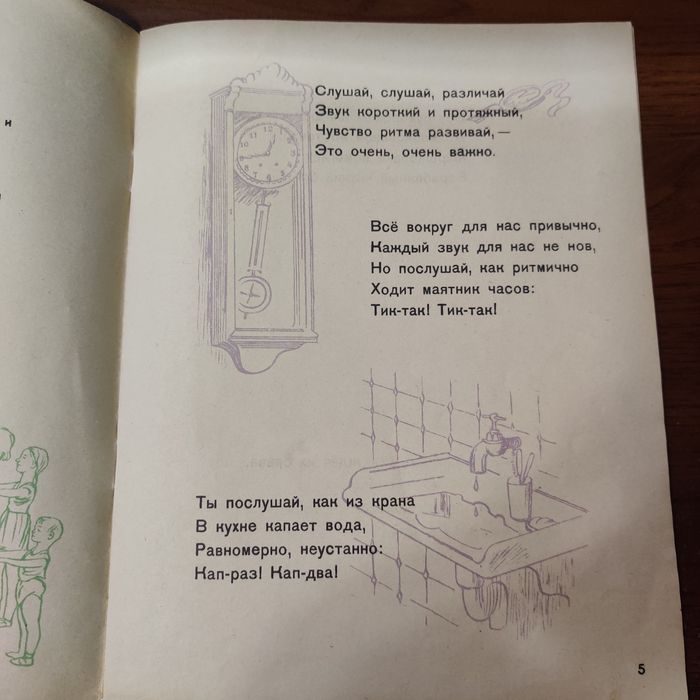 и
Слушай, слушай, различай
Звук короткий и протяжный,
Чувство ритма развивай, —
Это очень, очень важно.
Всё вокруг для нас привычно,
Каждый звук для нас не нов,
Но послушай, как ритмично
Ходит маятник часов:
Тик-так! Тик-так!
Ты послушай, как из крана
В кухне капает вода,
Равномерно, неустанно:
Кап-раз! Кап-два!
5